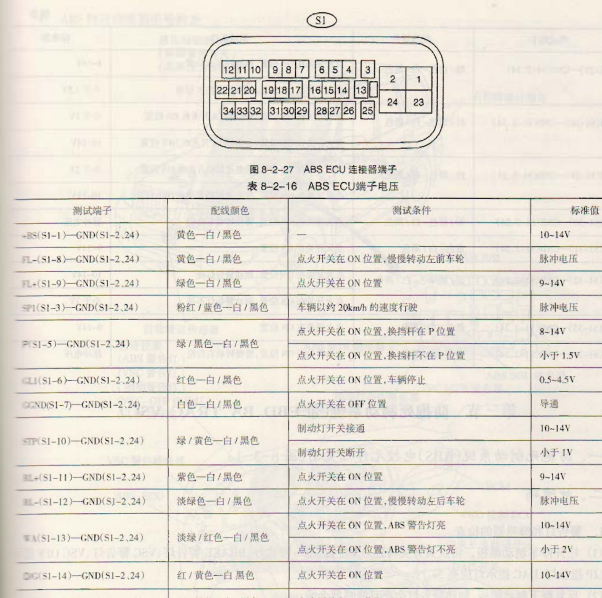 S1
12 11 10 9 8 7 6 5 4 3 2 1
22 21 20 19 18 17 16 15 14 13
24 23
34 33 32 31 30 29 28 27 26 25
图 8-2-27 ABS ECU 连接器端子
表 8-2-16 ABS ECU端子电压
测试端子 配线颜色 测试条件 标准值
+BS(S1-1)—GND(S1-2,24) 黄色—白/黑色 — 10~14V
FL-(S1-8)—GND(S1-2,24) 黄色—白/黑色 点火开关在 ON 位置,慢慢转动左前车轮 脉冲电压
FL+(S1-9)—GND(S1-2,24) 绿色—白/黑色 点火开关在 ON 位置 9~14V
SP1(S1-3)—GND(S1-2,24) 粉红/蓝色—白/黑色 车辆以约 20km/h 的速度行驶 脉冲电压
P(S1-5)—GND(S1-2,24) 绿/黑色—白/黑色 点火开关在 ON 位置,换挡杆在 P 位置 8~14V
点火开关在 ON 位置,换挡杆不在 P 位置 小于 1.5V
GL1(S1-6)—GND(S1-2,24) 红色—白/黑色 点火开关在 ON 位置,车辆停止 0.5~4.5V
GGND(S1-7)—GND(S1-2,24) 白色—白/黑色 点火开关在 OFF 位置 导通
STP(S1-10)—GND(S1-2,24) 绿/黄色—白/黑色 制动灯开关接通 10~14V
制动灯开关断开 小于 1V
RL+(S1-11)—GND(S1-2,24) 紫色—白/黑色 点火开关在 ON 位置 9~14V
RL-(S1-12)—GND(S1-2,24) 淡绿色—白/黑色 点火开关在 ON 位置,慢慢转动左后车轮 脉冲电压
WA(S1-13)—GND(S1-2,24) 淡绿/红色—白/黑色 点火开关在 ON 位置,ABS 警告灯亮 10~14V
点火开关在 ON 位置,ABS 警告灯不亮 小于 2V
D/G(S1-14)—GND(S1-2,24) 红/黄色—白 黑色 点火开关在 ON 位置 10~14V